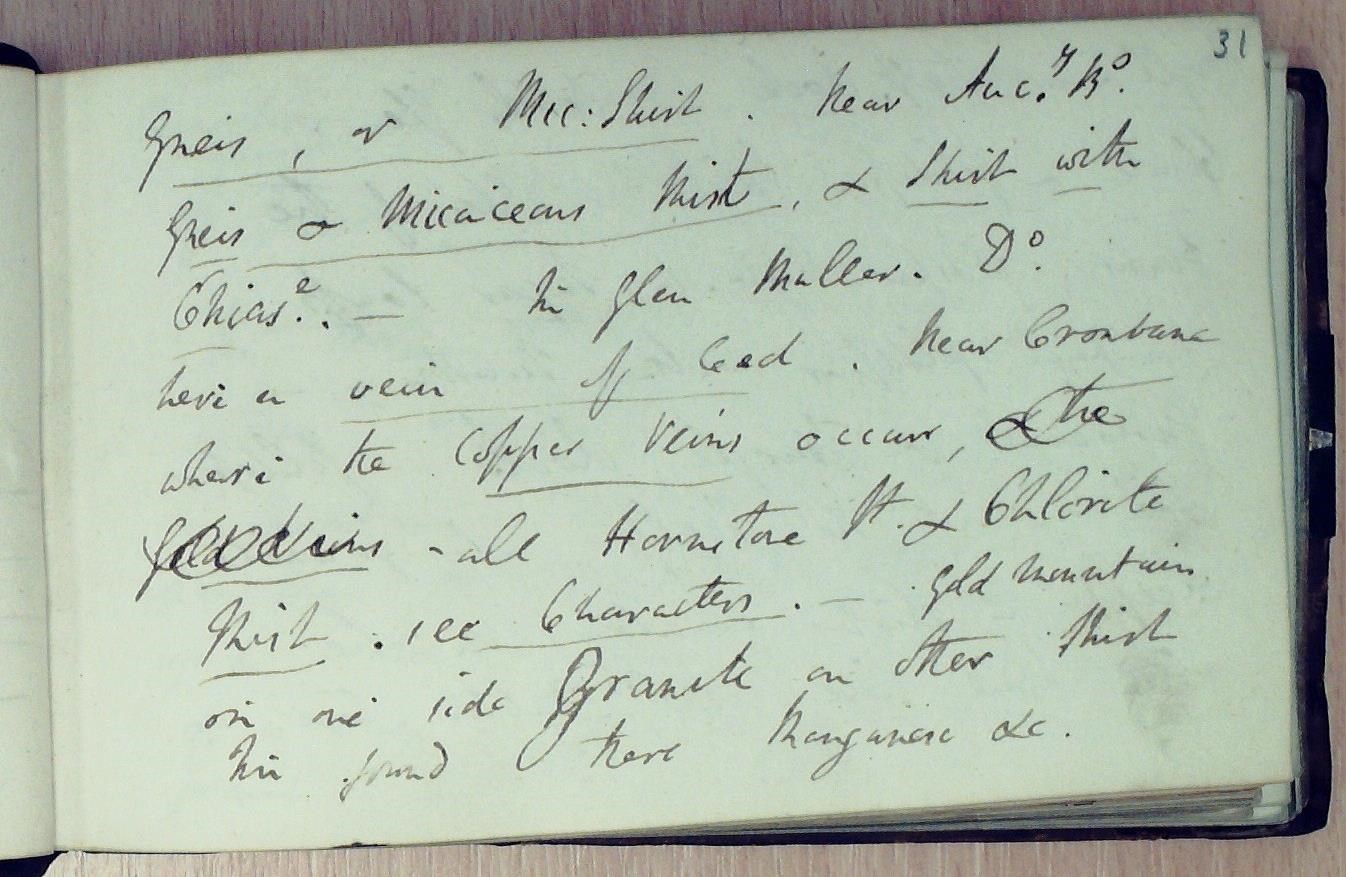 31
Gneis, or Mic: Shist. Near Auc.y Bo.
Gneis & Micaceous Shist, & Shist with
Chias.e. — In Glen Muller. Do.
here a vein of Lead. Near Cronbane
where the Copper Veins occur, & the
Gold Veins - all Hornstone St. & Chlorite
Shist. see Characters. — Gold mountain
on one side Granite on other Shist
Tin found there Manganese &c.